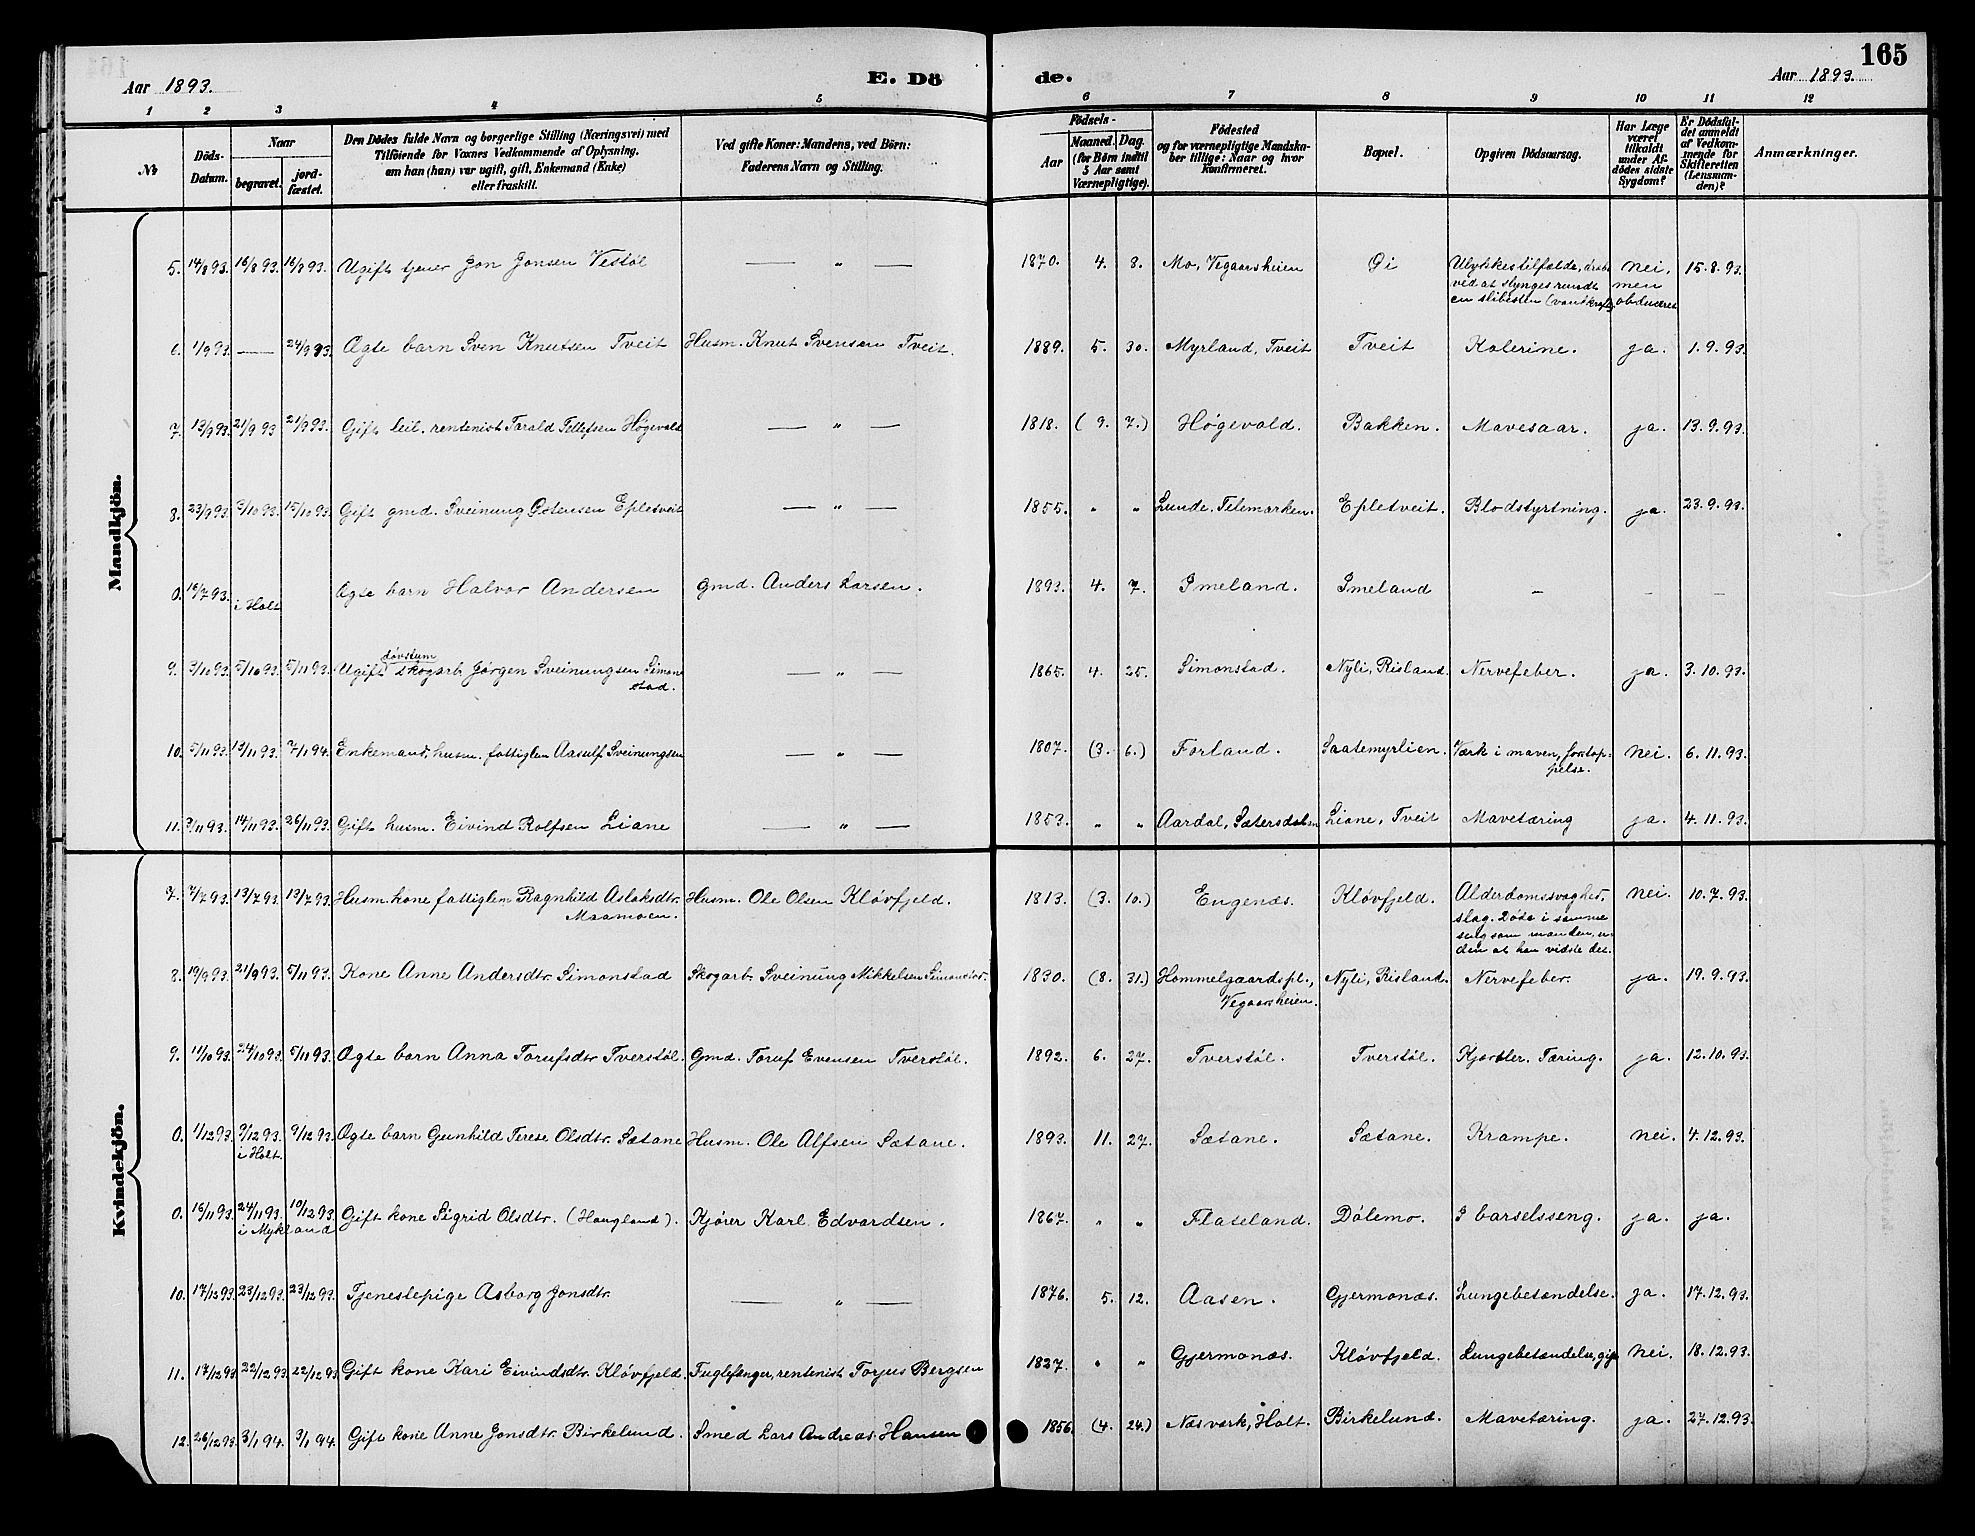 165
Aar 1893. E. Dö de. Aar 1893.
1 2 3 4 5 6 7 8 9 10 11 12
№ Döds-Datum. Naar begravet. jordfæstet. Den Dödes fulde Navn og borgerlige Stilling (Næringsvei) med Tilföiende for Voxnes Vedkommende af Oplysning, om han (hun) var ugift, gift, Enkemand (Enke) eller fraskilt. Ved gifte Koner: Mandens, ved Börn: Faderens Navn og Stilling. Födsels- Aar Maaned. Dag. (for Börn indtil 5 Aar samt Værnepligtige). Födested og for værnepligtige Mandskaber tillige: Naar og hvor konfirmeret. Bopæl. Opgiven Dödsaarsag. Har Læge været tilkaldt under Afdödes sidste Sygdom? Er Dödsfaldet anmeldt af Vedkommende for Skifteretten (Lensmanden)? Anmærkninger.
Mandkjön.
5. 14/8 93. 16/8 93. 16/8 93. Ugift tjener Jon Jonsen Vestøl — „ — 1870. 4. 8. Mo, Vegaarsheien Øi Ulykkestilfælde, dræbt nei, 15.8.93.
ved at slynges rundt men
en slibesten (vandkraft) obduceret
6. 1/9 93. — 24/9 93. Ægte barn Sven Knutsen Tveit Husm. Knut Svensen Tveit. 1889. 5. 30. Myrland, Tveit Tveit Kolerine. ja. 1.9.93.
7. 13/9 93. 21/9 93 21/9 93. Gift leil. rentenist Tarald Tellefsen Høgevold — „ — 1818. (9. 7.) Høgevold. Bakken. Mavesaar. ja. 13.9.93.
8. 23/9 93. 3/10 93. 15/10 93. Gift gmd. Sveinung Østensen Epletveit — „ — 1855. „ „ Lunde, Telemarken. Epletveit. Blodstyrtning. ja. 23.9.93.
0. 16/7 93. i Holt Ægte barn Halvor Andersen gmd. Anders Larsen. 1893. 4. 7. Imeland. Imeland — — —
døvstum
9. 3/10 93. 5/10 93. 5/11 93. Ugift skogarb. Jørgen Sveinungsen Simon- — „ — 1865. 4. 25. Simonstad. Nyli, Risland. Nervefeber. ja. 3.10.93.
stad.
10. 5/11 93. 13/11 93. 7/1 94. Enkemand, husm. fattiglem Aasulf Sveinungsen — „ — 1807. (3. 6.) Forland. Saatemyrlien. Værk i maven, forstop- nei. 6.11.93.
pelse.
11. 3/11 93. 14/11 93. 26/11 93. Gift husm. Eivind Rolfsen Liane — „ — 1853. „ „ Aardal, Sætersdalen Liane, Tveit Mavetæring ja. 4.11.93.
Kvindekjön.
7. 7/7 93. 13/7 93. 13/7 93. Husm. kone fattiglem Ragnhild Aslaksdtr. Husm. Ole Olsen Kløvfjeld. 1813. (3. 10.) Engenæs. Kløvfjeld. Alderdomssvaghed, nei. 10.7.93.
Maamoen. slag. Døde i samme
seng som manden, u-
den at han vidste det.
8. 19/9 93. 21/9 93. 5/11 93. Kone Anne Andersdtr. Simonstad Skogarb. Sveinung Mikkelsen Simonstad. 1830. (8. 31.) Hommelgaardspl., Nyli, Risland. Nervefeber. ja. 19.9.93.
Vegaarsheien.
9. 11/10 93. 24/10 93. 5/11 93. Ægte barn Anna Torufsdtr Tverstøl. Gmd. Toruf Evensen Tverstøl. 1892. 6. 27. Tverstøl. Tverstøl. Kjertler. Tæring. ja. 12.10.93.
0. 1/12 93. 9/12 93. 9/12 93. Ægte barn Gunhild Terese Olsdtr. Sætane Husm. Ole Alfsen Sætane. 1893. 11. 27. Sætane. Sætane. Krampe. nei. 4.12.93.
i Holt.
0. 16/11 93. 24/11 93. 10/12 93. Gift kone Sigrid Olsdtr. (Haugland). Kjører Karl Edvardsen. 1867. „ „ Flateland. Dølemo. I barselsseng. ja. ja.
i Mykland
10. 17/12 93. 23/12 93. 23/12 93. Tjenestepige Asborg Jonsdtr. — „ — 1876. 5. 12. Aasen. Gjermonæs. Lungebetændelse. ja. 17.12.93.
11. 17/12 93. 22/12 93. 22/12 93. Gift kone Kari Eivindsdtr. Kløvfjeld. Fuglefænger, rentenist Torjus Bergsen 1827. „ „ Gjermonæs. Kløvfjeld. Lungebetændelse, gift nei. 18.12.93.
12. 26/12 93. 3/1 94. 3/1 94. Gift kone Anne Jonsdtr. Birkelund. Smed Lars Andreas Hansen 1856. (4. 24.) Næsværk, Holt. Birkelund. Mavetæring. ja. 27.12.93.